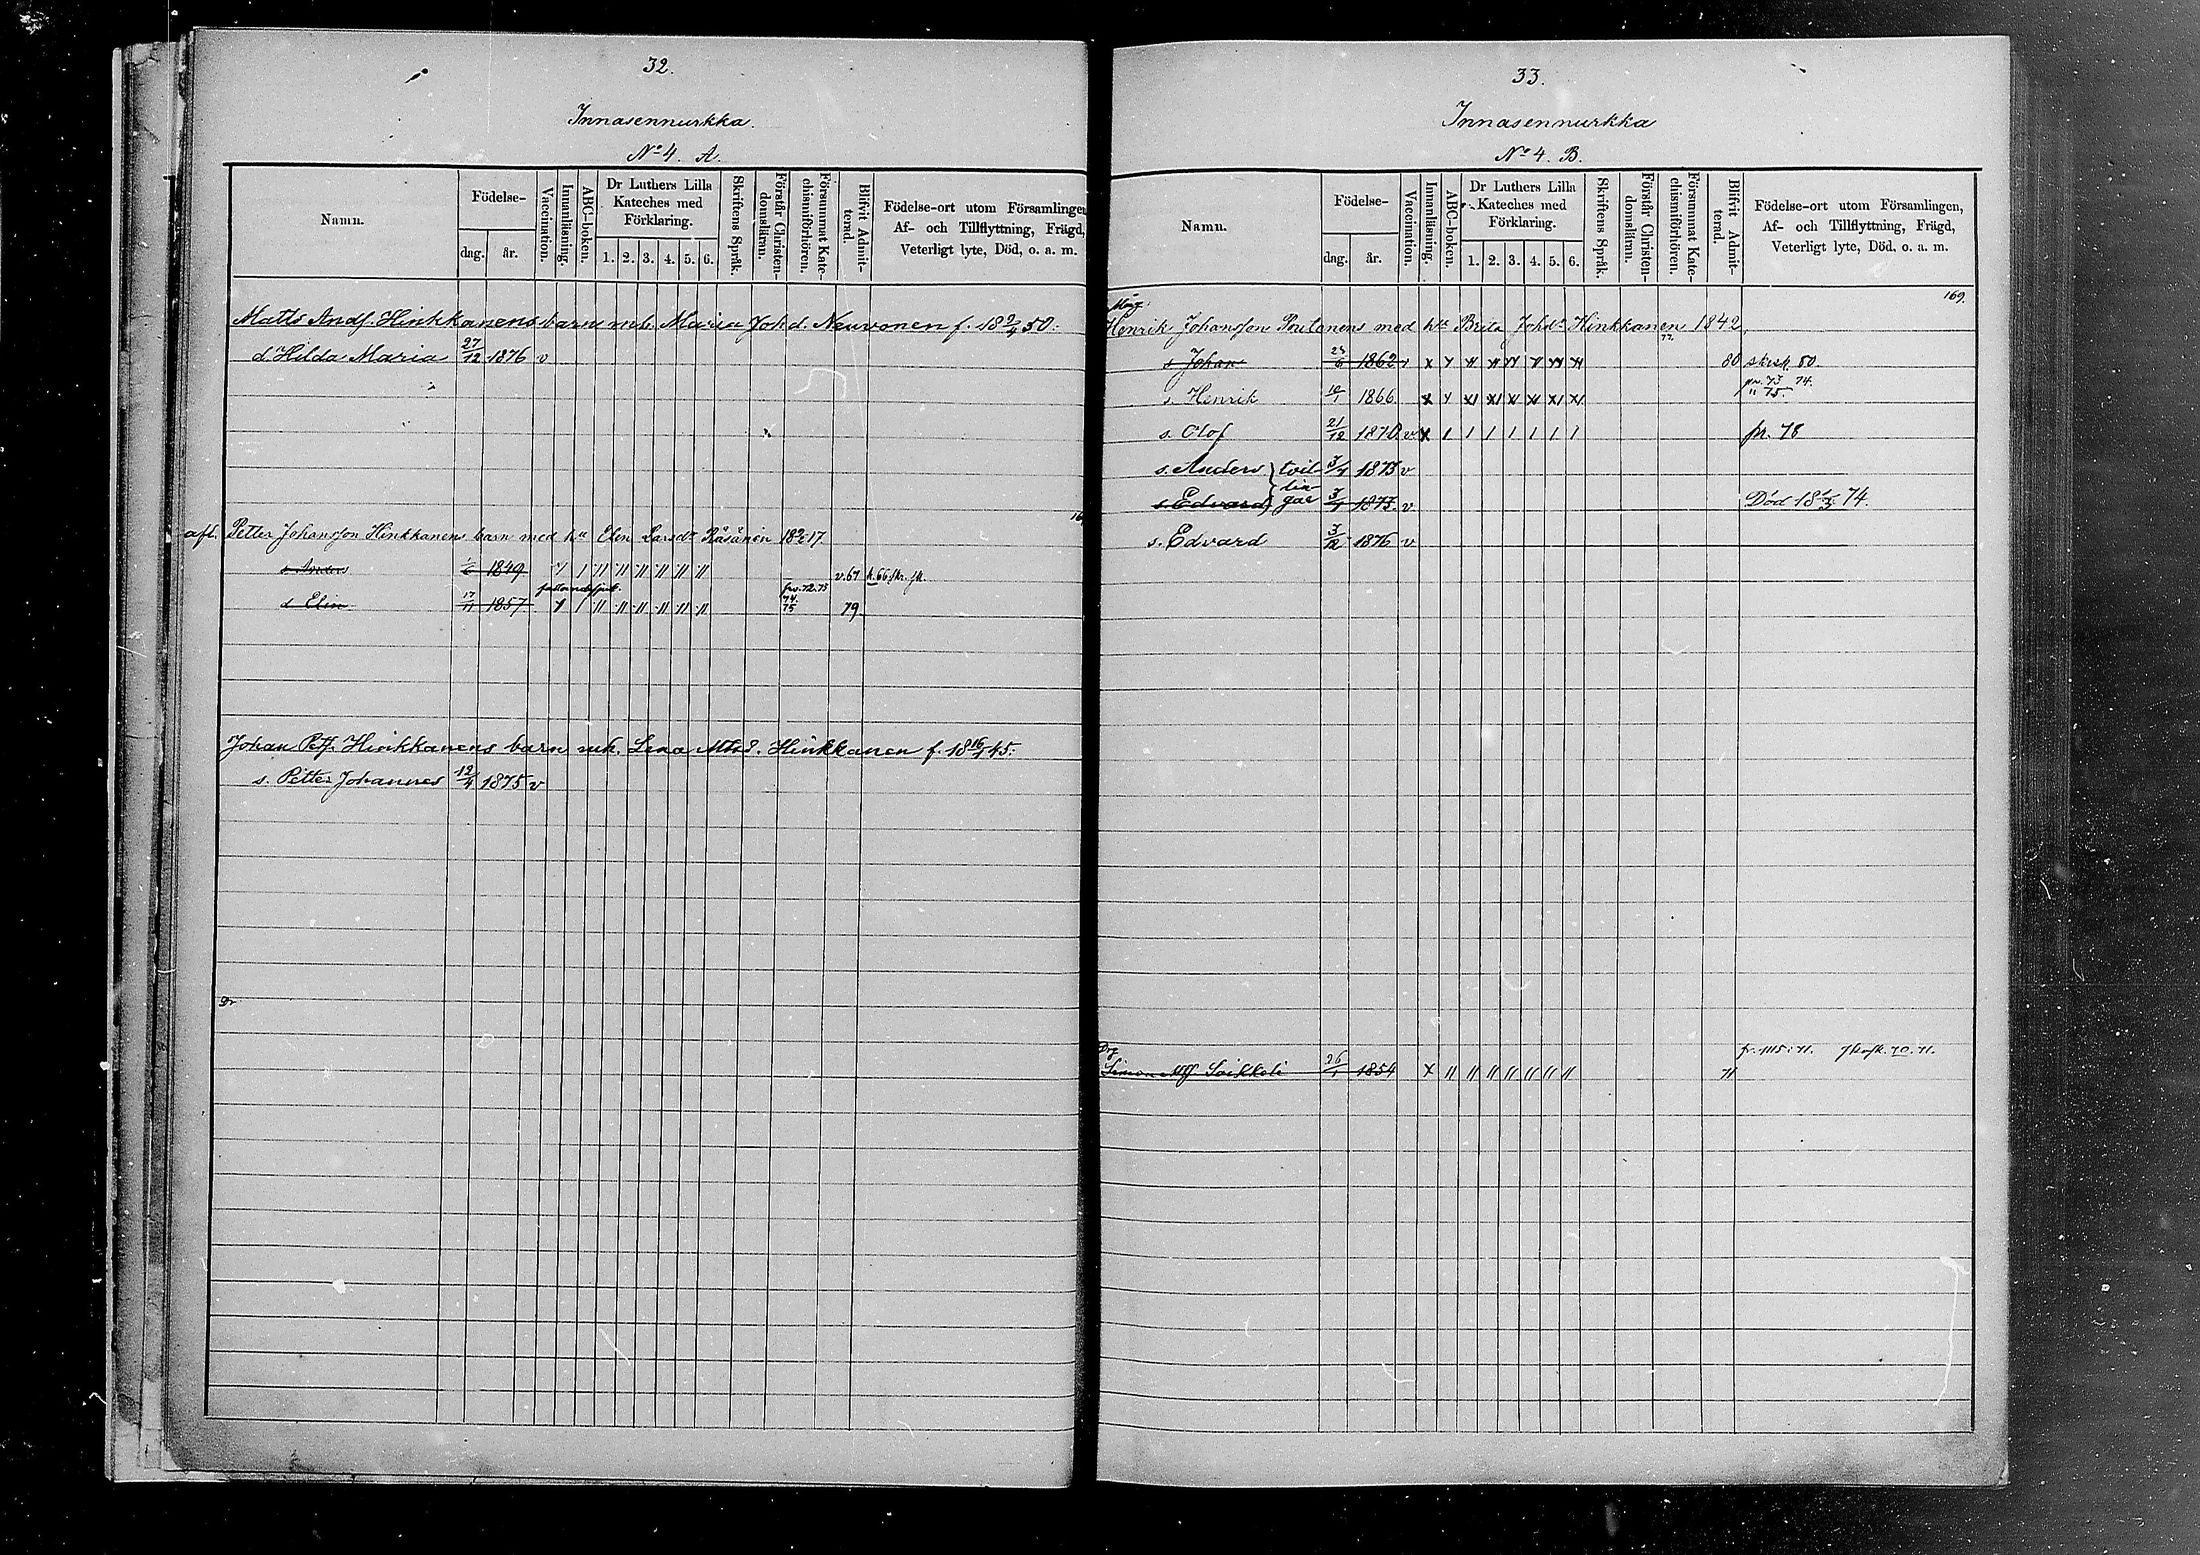 32.
Innasennurkka.
No 4. A.
Namn.
Födelse-
dag. år.
Vaccination.
Innanläsning.
ABC-boken.
Dr Luthers Lilla
Kateches med
Förklaring.
1. 2. 3. 4. 5. 6.
Skriftens Språk.
Förstår Christen-
domsläran.
Försummat Kate-
chismiförhören.
Blifvit Admit-
terad.
Födelse-ort utom Församlingen
Af- och Tillflyttning, Frägd,
Veterligt lyte, Död, o. a. m.
Matts Andf. Hinkkanens barn m.h. Maria Johd. Neuvonen f. 18 9/4 50:
d. Hilda Maria 27/12 1876 v
afl. Petter Johansson Hinkkanens barn med hu Elin Larsdr Räsänen 17
s. Anders 1849 v. 67
d. Elin 17/11 1857 74. 75 79.
Johan Petf. Hinkkanens barn m.h. Lena Mtsd. Hinkkanen f. 18 16/1 45:
s. Petter Johannes 12/4 1875 v
33.
Innasennurkka
No 4. B.
Namn.
Födelse-
dag. år.
Vaccination.
Innanläsning.
ABC-boken.
Dr Luthers Lilla
Kateches med
Förklaring.
1. 2. 3. 4. 5. 6.
Skriftens Språk.
Förstår Christen-
domsläran.
Försummat Kate-
chismiförhören.
Blifvit Admit-
terad.
Födelse-ort utom Församlingen,
Af- och Tillflyttning, Frägd,
Veterligt lyte, Död, o. a. m.
169.
Henrik Johansson Poutanens med hu Brita Johdr Hinkkanen 1842
77.
s. Johan 1862 v 80 80.
s. Henrik 10/1 1866 74. " 75.
s. Olof 21/12 1870 v 78
s. Anders tvil- 3/4 1873 v
s. Edvard lin-gar 3/4 1873 v Död 18 74.
s. Edvard 3/12 1876 v
Drg
Simon Soikkeli 26/1 1854 71